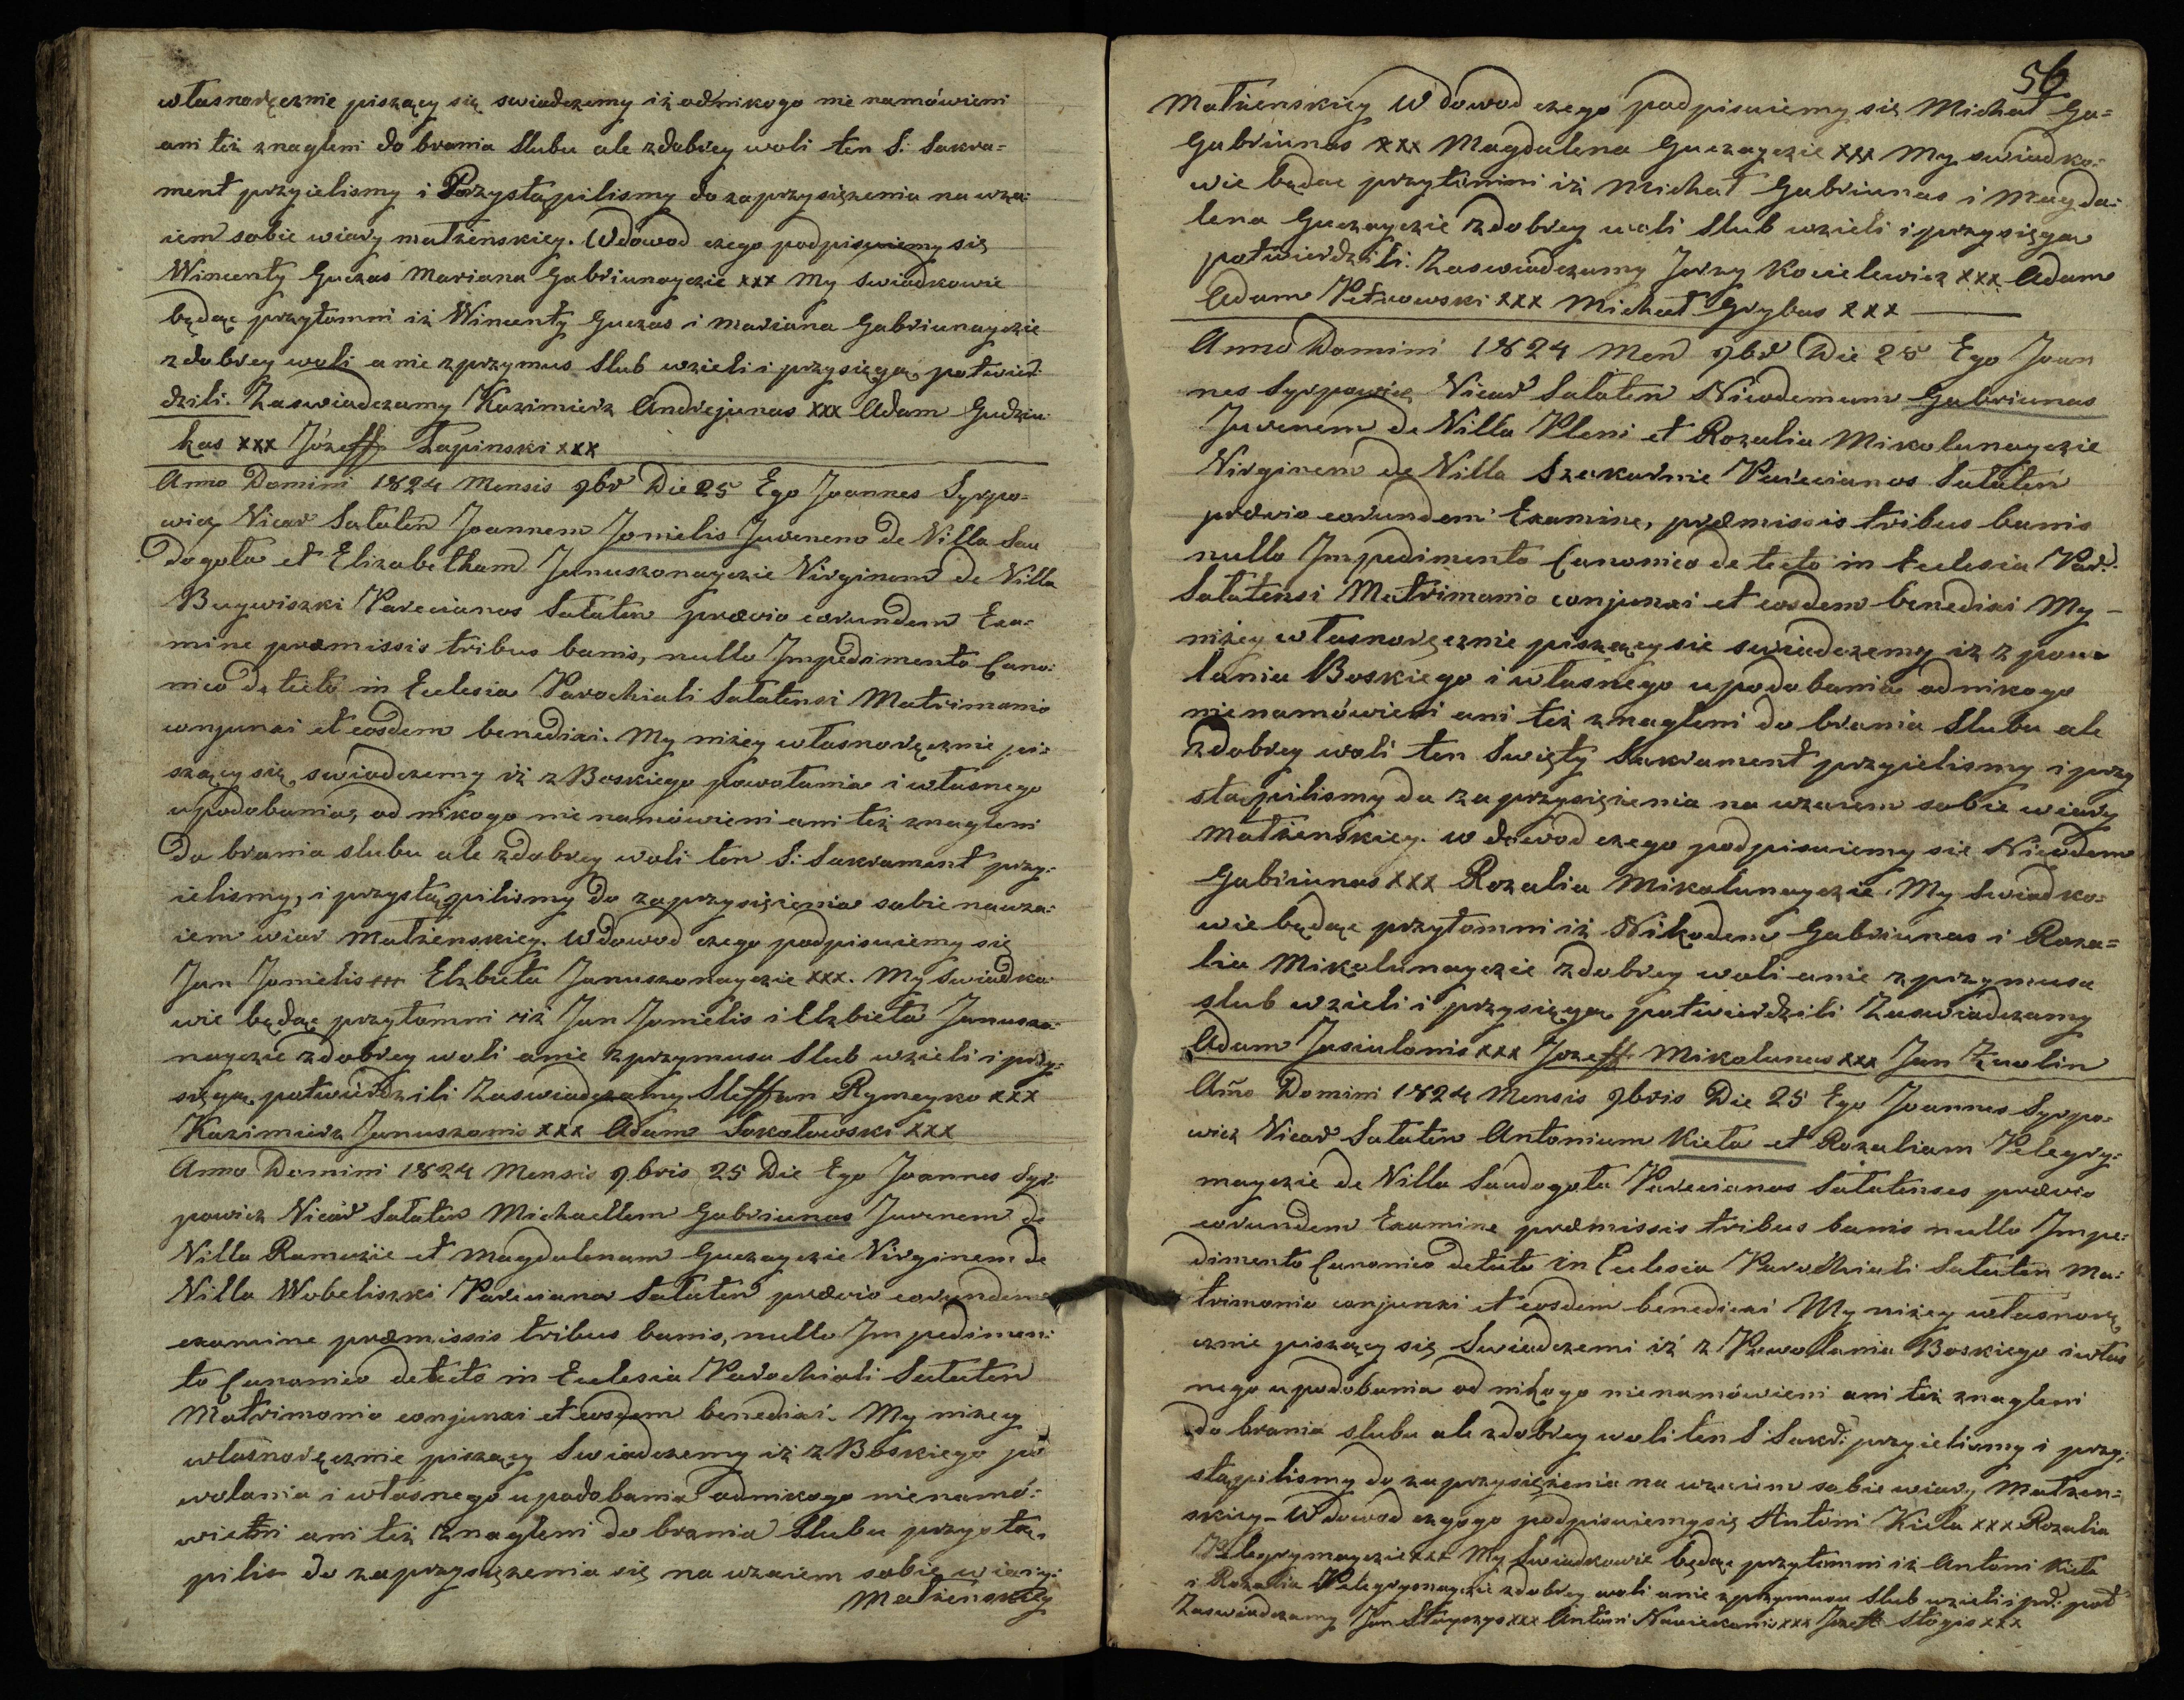 własnoręcznie piszący się swiadczemy iż od nikogo nie namówieni
ani też znagleni do brania slubu ale z dobrey woli ten S: Sakra=
ment przyielismy i Przystąpilismy do zaprzysiężenia na wza=
iem sobie wiary małżenskiey. W dowod czego podpisuiemy się
Wincenty Guzas Mariana Gabriunayczie xxx My Swiadkowie
będąc przytomni iż Wincenty Guzas i Mariana Gabriunayczie
z dobrey woli a nie z przymus Slub wzieli i przysięgą potwier=
dzili. Zaswiadczamy Kazimierz Andrejunas xxx Adam Gudziu=
kas xxx Józeff Łapinski xxx
Anno Domini 1824 Mensis 9br Die 25 Ego Joannes Syrpo=
wicz Vicar Sałaten Joannem Jomielis Juvenem de Villa Sau
dogoła et Elizabetham Januszonayczie Virginem de Villa
Bugwiszki Parecianos Sałaten prævio eorundem Exa=
mine præmissis tribus banis, nullo Impedimento Cano=
nico detecto in Eclesia Parochiali Sałatensi Matrimonio
conjunxi et eosdem benedixi. My niżey własnoręcznie pi=
szący się swiadczemy iż z Boskiego powołania i własnego
upodobania, od nikogo nie namówieni ani też znagleni
do brania slubu ale z dobrey woli ten S: Sakrament przy=
ielismy, i przystąpilismy do zaprzysiężenia sobie na wza=
iem wiar Małżenskiey. W dowod czego podpisuiemy się
Jan Jomielis xxx Elzbieta Januszonayczie xxx. My Swiadko=
wie będąc przytomni iż Jan Jomielis i Elzbieta Januszo=
nayczie z dobrey woli a nie z przymusu Slub wzieli i przy=
sięgą potwierdzili Zaswiadczamy Steffan Rymeyko xxx
Kazimierz Januszonis xxx Adam Sokołowski xxx
Anno Domini 1824 Mensis 9bris 25 Die Ego Joannes Syr=
powicz Vicar Sałaten Michaellem Gabriunas Juvenem de
Villa Ramuzie et Magdalenam Guzayczie Virginem de
Villa Wobeliszki Pareciana Sałaten prævio eorundem
examine præmissis tribus banis, nullo Impedimen=
to Canonico detecto in Eclesia Parochiali Sałaten
Matrimonio conjunxi et eosdem benedixi. My nizey
własnoręcznie piszący Swiadczemy iż z Boskiego po
wolania i własnego upodobania od nikogo nie namó=
wieni ani też znagleni do brania Slubu przystą=
pilis do zaprzysiężenia się na wzaiem sobie wiary
Małżenskiey
56
Małżenskiey W dowod czego podpisuiemy się Michał Ga=
Gabriunas xxx Magdalena Guzayczie xxx My swiadko=
wie będąc przytomni iż Michał Gabriunas i Magda=
lena Guzayczie z dobrey woli Slub wzieli i przysięgą
potwierdzili. Zaswiadczamy Jerzy Kocielewicz xxx Adam
Adam Petrowski xxx Michał Grybas xxx
Anno Domini 1824 Men 9br Die 25 Ego Joan
nes Syrpowicz Vicar Sałaten Nicodemum Gabriunas
Juvenem de Villa Pleni et Rozalia Mikolunayczie
Virginem de Villa Szakarnie Parecianos Sałaten
prævio eorundem Examine, præmissis tribus banis
nullo Impedimento Canonico detecto in Eclesia Par:
Sałatensi Matrimonio conjunxi et eosdem benedixi My
niżey własnoręcznie piszący sie swiadczemy iż z powo
łania Boskiego i własnego upodobania od nikogo
nie namówieni ani też znagleni do brania Slubu ale
z dobrey woli ten Swięty Sakrament przyielismy i przy
stąpilismy do zaprzysiężenia na wzaiem sobie wiary
Małżenskiey. w dowod czego podpisuiemy sie Nicodem
Gabriunas xxx Rozalia Mikolunayczie My Swiadko=
wie będąc przytomni iż Nikodem Gabriunas i Roza=
lia Mikolunayczie z dobrey woli a nie z przymusu
slub wzieli i przysięgą potwierdzili Zaswiadczamy
Adam Jasiulonis xxx Jozeff Mikolunas xxx Jan Zuolin
Año Domini 1824 Mensis 9bris Die 25 Ego Joannes Syrpo=
wicz Vicar Sałaten Antonium Kieła et Rozaliam Pelegry=
mayczie de Villa Saudogoła Parecianos Sałatenses prævio
eorundem Examine præmissis tribus banis nullo Impe=
dimento Canonico detecto in Eclesia Parochiali Sałaten Ma=
trimonio conjunxi et eosdem benedicxi My niżey własnorę
cznie piszący się Swiadczemi iż z Powołania Boskiego i włas
nego upodobania od nikogo nie namówieni ani też znagleni
do brania slubu ale z dobrey woli ten S: Sakr: przyielismy i przy=
stąpilismy do zaprzysiężenia na wzaiem sobie wiary Małżen=
skiey - W dowod czegogo podpisuiemy się Antoni Kieła xxx Rozalia
Pelegrymayczie xxx My Swiadkowie będąc przytomni iż Antoni Kieła
i Rozalia Pelegrymayczie z dobrey woli a nie z przymusu Slub wzieli i pr: pot
Zaswiadczamy Jan Stayszys xxx Antoni Navickonis xxx Jozeff Słogis xxx